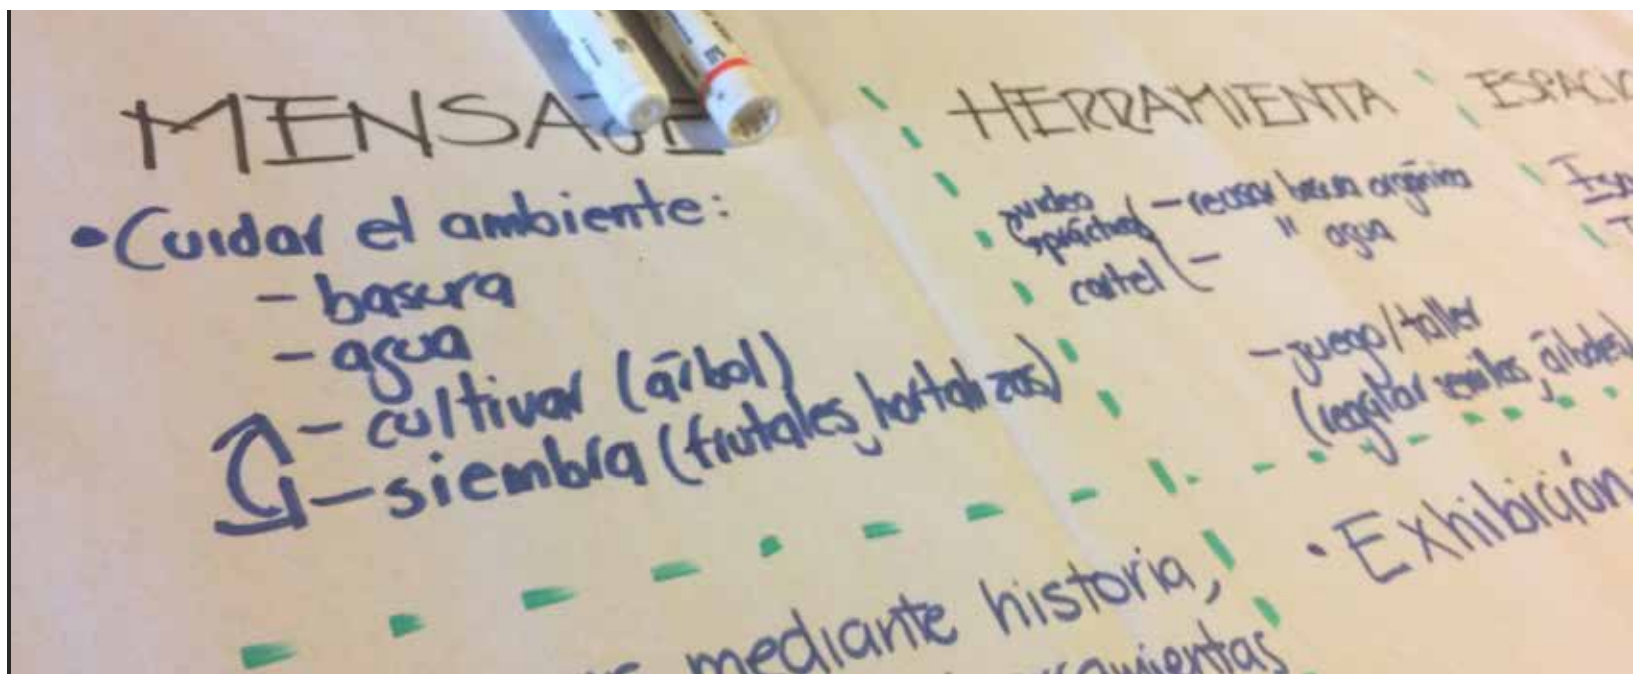 MENSAJE
• Cuidar el ambiente:
- basura
- agua
- cultivar (árbol)
- siembra (frutales, hortalizas)
mediante historia,
HERRAMIENTA
video
prácticas
cartel
- reusar basura orgánica
" agua
-
- juego/taller
(regalar semillas, árboles)
• Exhibición
ESPACIO